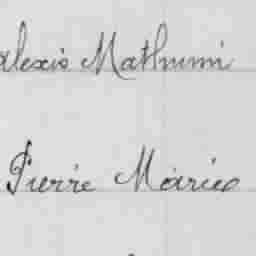 Alexis Mathurini
Pierre Marie